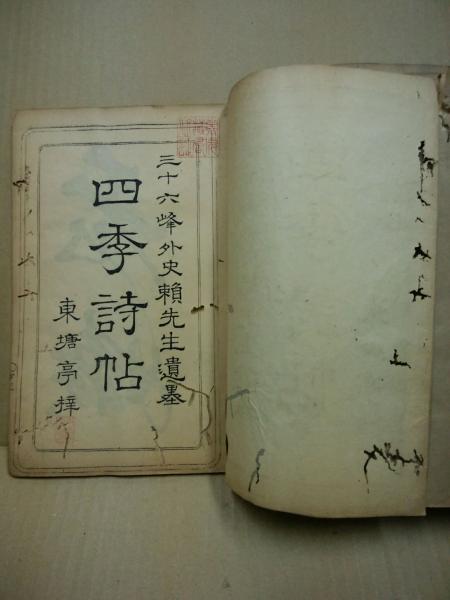 三十六峰外史賴先生遺墨
四季詩帖
東塘亭梓